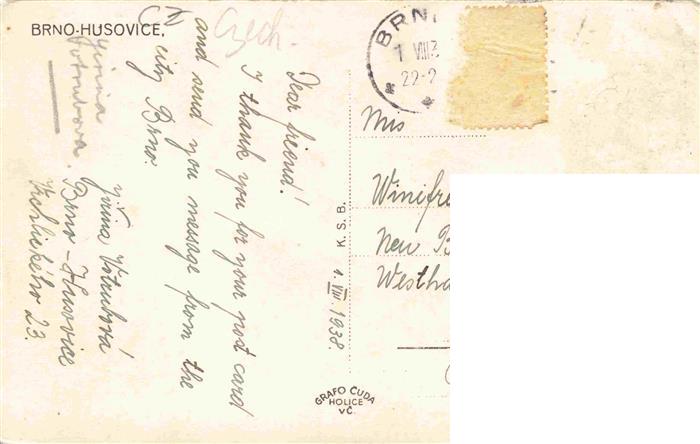 BRNO-HUSOVICE,
Czech.
Jiřina
Votrubova.
Dear friend!
I thank you for your post card
and send you message from the
city Brno.
Jiřina Votrubová
Brno-Husovice
Vrchlického 23.
1. VIII. 1938.
K. S. B.
GRAFO ČUDA
HOLICE
V Č.
BRN
1 VIII 3
22-2
Mis
Winifre
New B
Westha